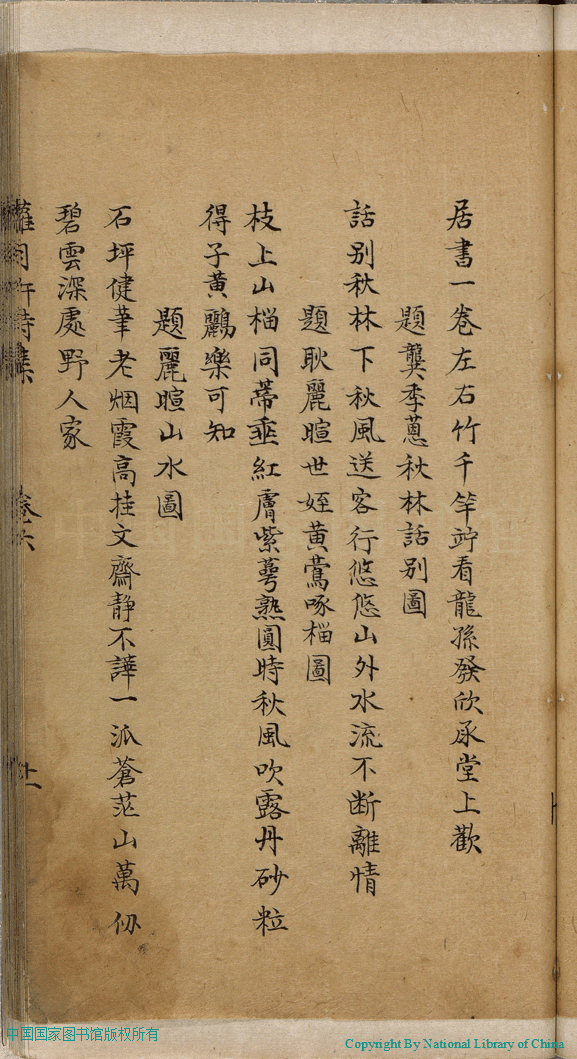 居書一卷左右竹千竿竚看龍孫發欣承堂上歡
題龔季蔥秋林話別圖
話別秋林下秋風送客行悠悠山外水流不断離情
題耿麗暄世姪黄鶯啄榴圖
枝上山榴同蒂垂紅膚紫萼熟圓時秋風吹露丹砂粒
得子黄鸝樂可知
題麗暄山水圖
石坪健筆老烟霞高挂文齋静不譁一派蒼茫山萬仭
碧雲深處野人家
卷六
中国国家图书馆版权所有
Copyright By National Library of China